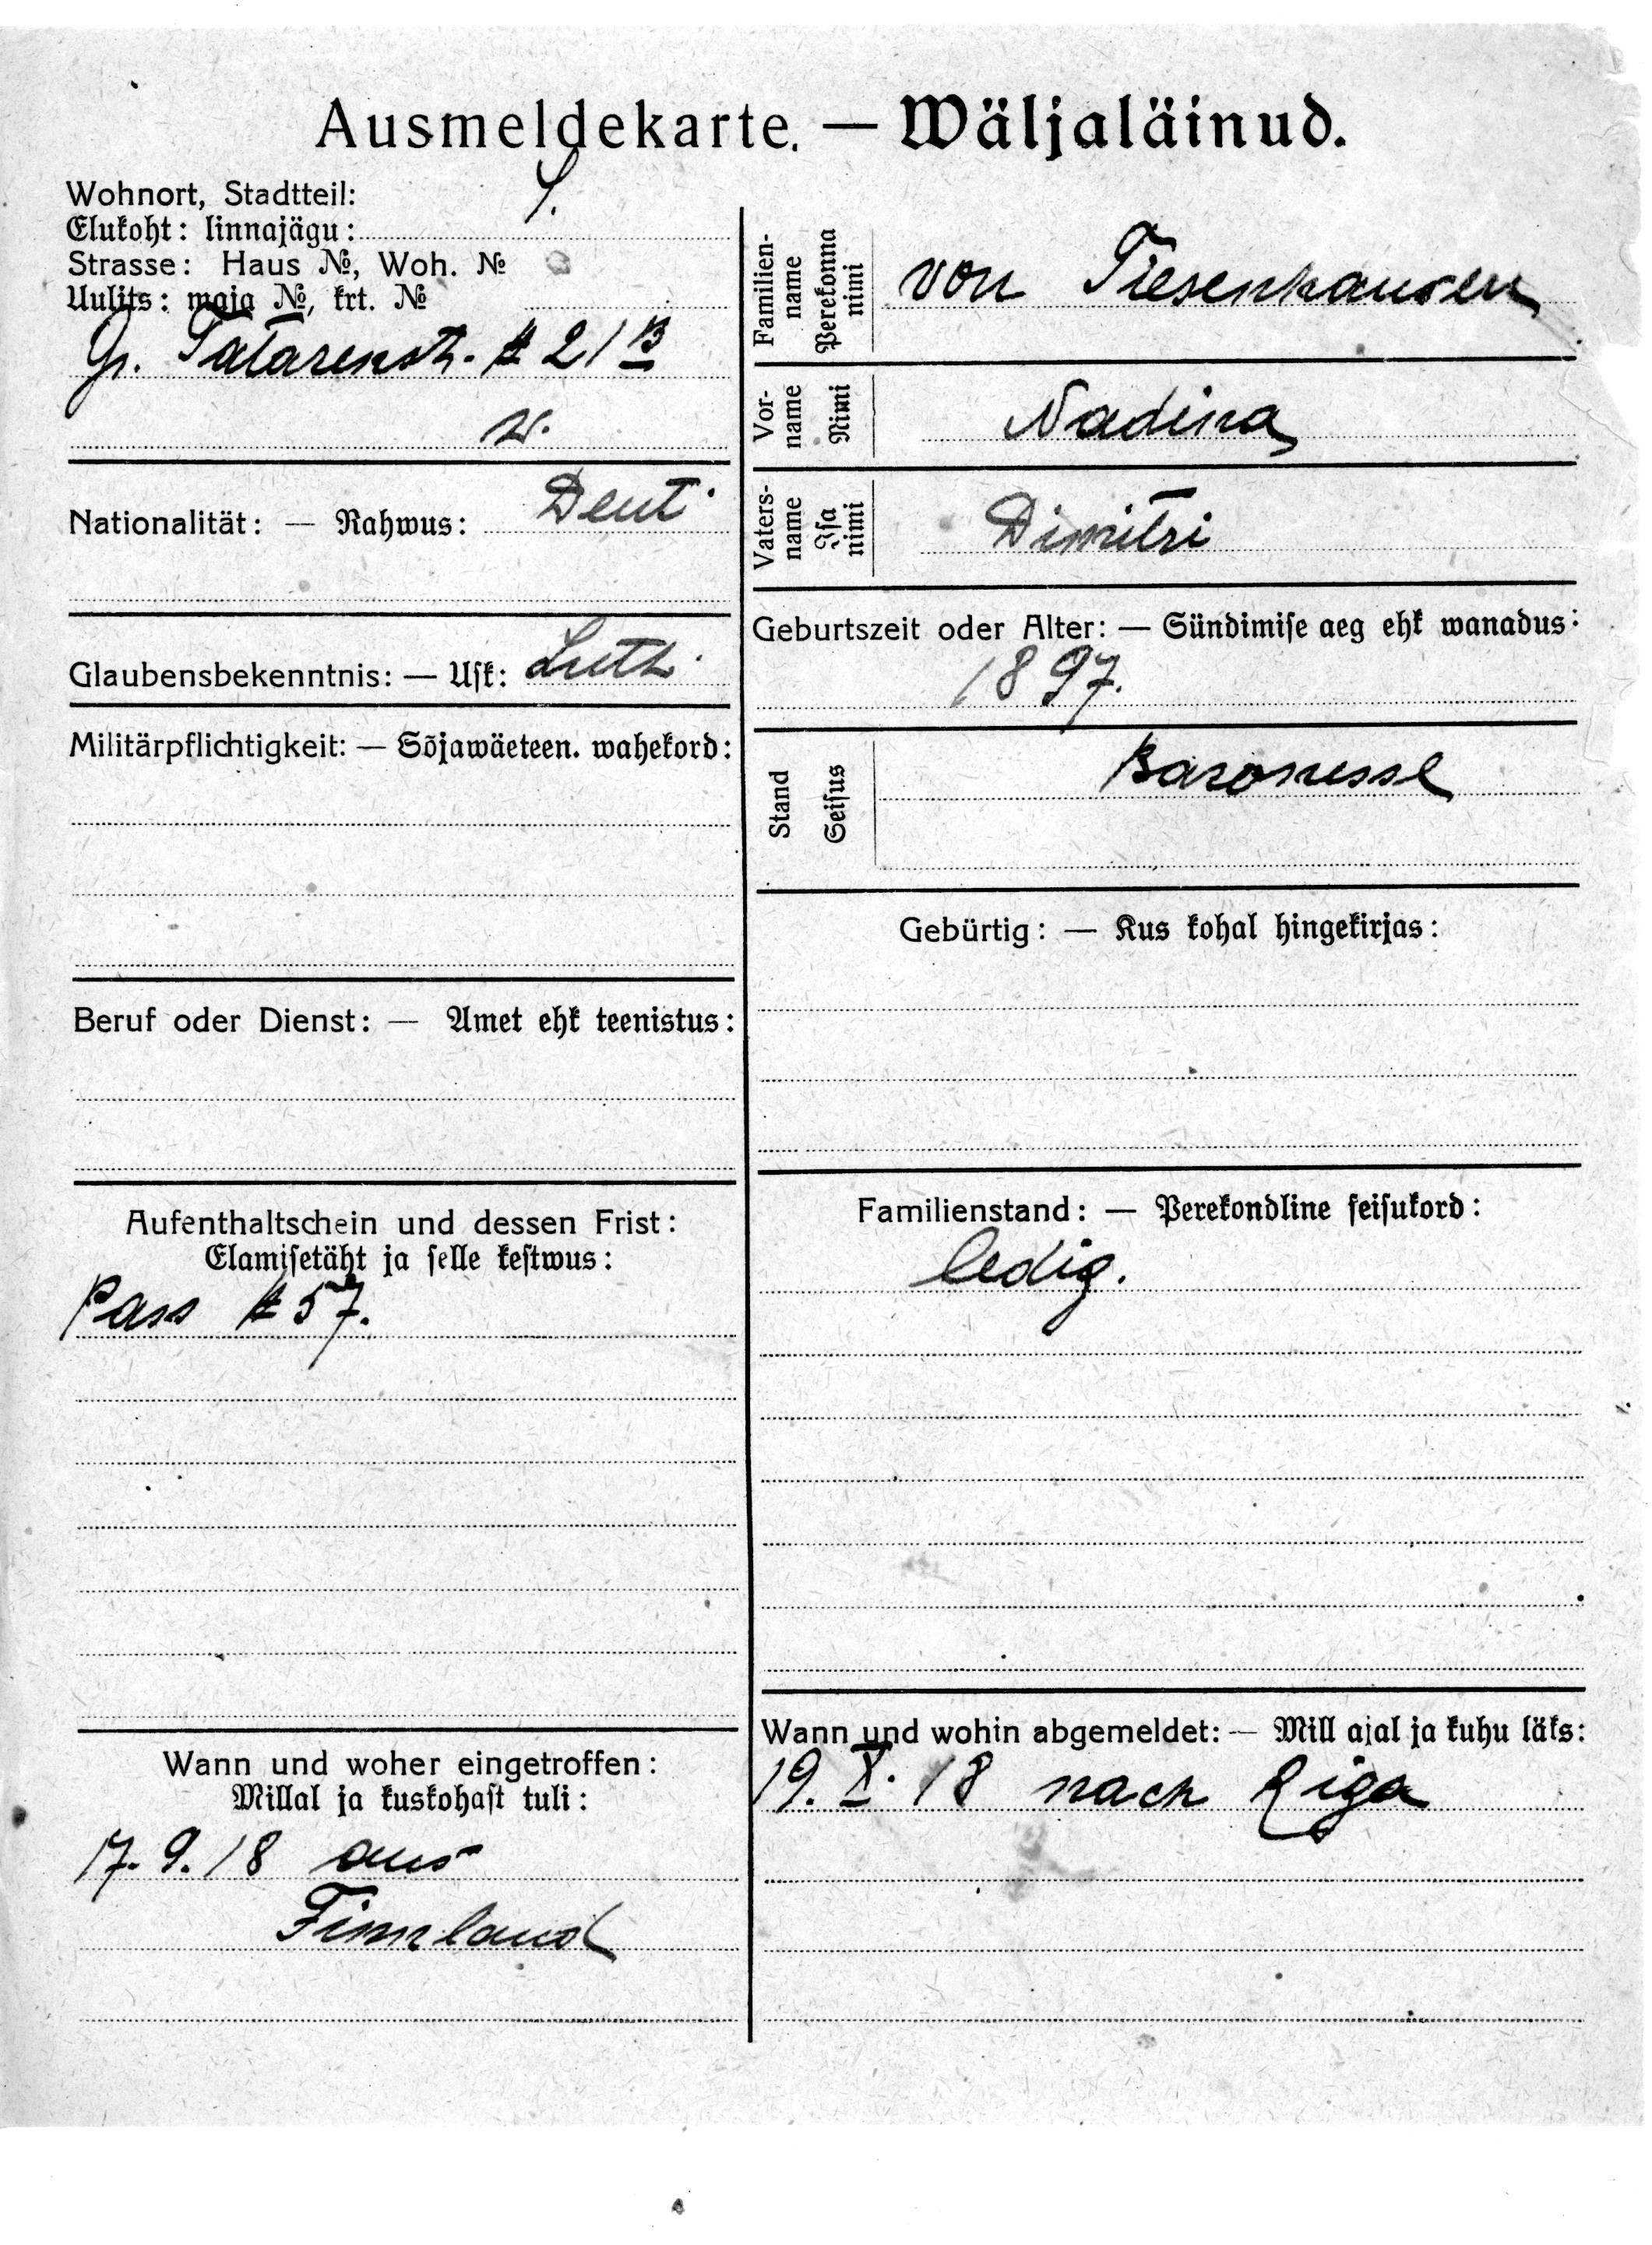 Ausmeldekarte. — Wäljaläinud.
Wohnort, Stadtteil:
Elukoht: linnajägu:
Strasse: Haus №, Woh. №
Uulits: maja №, krt. №
Gr. Tatarenstr. # 21 B
Nationalität: — Rahwus: Deut.
Glaubensbekenntnis: — Usk: Luth.
Militärpflichtigkeit: — Sõjawäeteen. wahekord:
Beruf oder Dienst: — Amet ehk teenistus:
Aufenthaltschein und dessen Frist:
Elamisetäht ja selle kestwus:
Pass # 57.
Wann und woher eingetroffen:
Millal ja kuskohast tuli:
17. 9. 18 aus
Finnland
Familien-
name
Perekonna
nimi
von Tiesenhausen
Vor-
name
Nimi
Nadina
Vaters-
name
Isa
nimi
Dimitri
Geburtszeit oder Alter: — Sündimise aeg ehk wanadus:
1897.
Stand
Seisus
Baronesse
Gebürtig: — Kus kohal hingekirjas:
Familienstand: — Perekondline seisukord:
ledig.
Wann und wohin abgemeldet: — Mill ajal ja kuhu läks:
19. X. 18 nach Riga